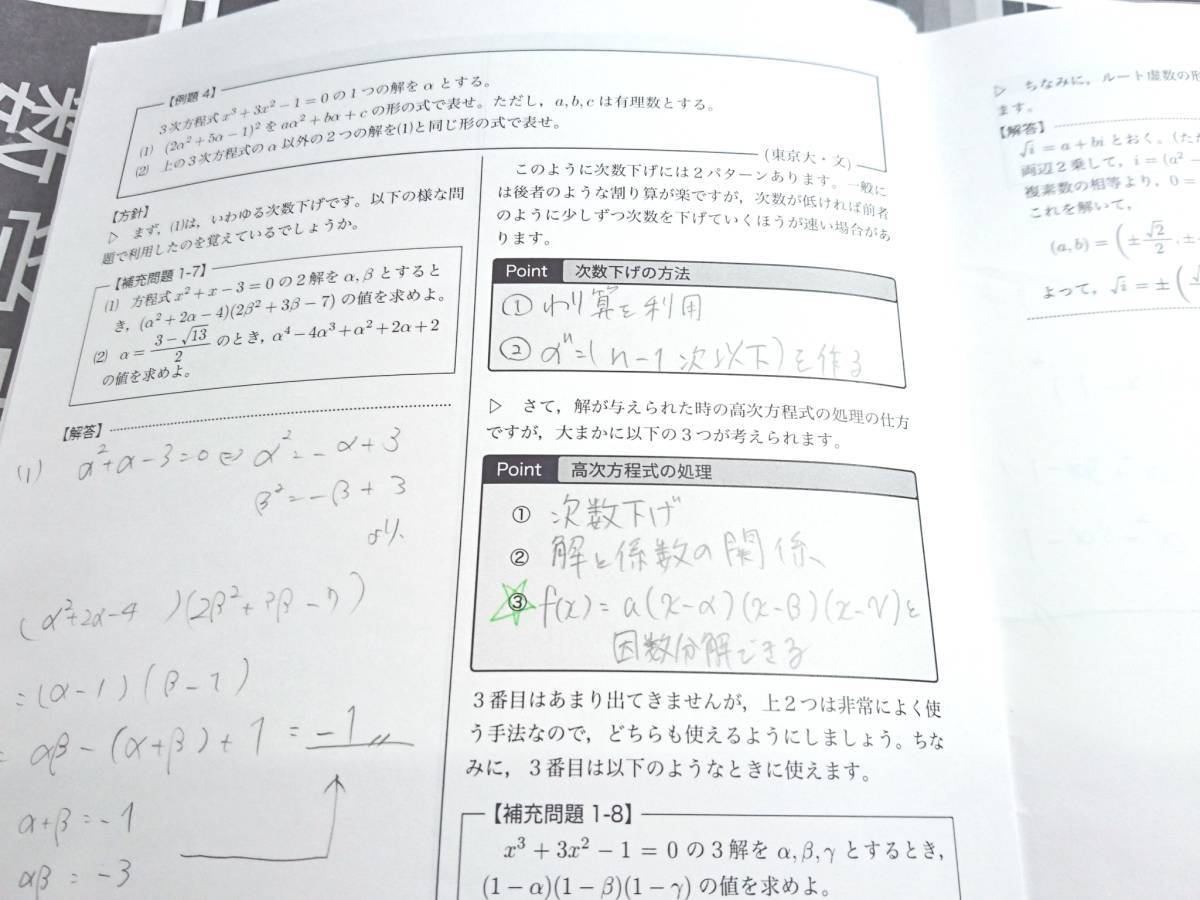 数学
【例題 4】
3次方程式 x³+3x²−1=0 の1つの解を α とする。
(1) (2α²+5α−1)² を aα²+bα+c の形の式で表せ。ただし,a,b,c は有理数とする。
(2) 上の3次方程式の α 以外の2つの解を(1)と同じ形の式で表せ。
(東京大・文)
【方針】
▷ まず,(1)は,いわゆる次数下げです。以下の様な問
題で利用したのを覚えているでしょうか。
【補充問題 1-7】
(1) 方程式 x²+x−3=0 の2解を α,β とすると
き,(α²+2α−4)(2β²+3β−7) の値を求めよ。
(2) α=(3−√13)/2 のとき,α⁴−4α³+α²+2α+2
の値を求めよ。
【解答】
(1) α²+α−3=0 ⇔ α²=−α+3
β²=−β+3
より、
(α²+2α−4)(2β²+3β−7)
=(α−1)(β−1)
=αβ−(α+β)+1=−1
α+β=−1
αβ=−3
このように次数下げには2パターンあります。一般に
は後者のような割り算が楽ですが,次数が低ければ前者
のように少しずつ次数を下げていくほうが速い場合があ
ります。
Point 次数下げの方法
① わり算を利用
② αⁿ=(n−1次以下)を作る
▷ さて,解が与えられた時の高次方程式の処理の仕方
ですが,大まかに以下の3つが考えられます。
Point 高次方程式の処理
① 次数下げ
② 解と係数の関係、
③ f(x)=a(x−α)(x−β)(x−γ)と
因数分解できる
3番目はあまり出てきませんが,上2つは非常によく使
う手法なので,どちらも使えるようにしましょう。ちな
みに,3番目は以下のようなときに使えます。
【補充問題 1-8】
x³+3x²−1=0 の3解を α,β,γ とするとき,
(1−α)(1−β)(1−γ) の値を求めよ。
▷ ちなみに,ルート虚数の形
ます。
【解答】
√i=a+bi とおく。(ただ
両辺2乗して,i=(a²−
複素数の相等より,0=
これを解いて,
(a,b)=(±√2/2,±
よって,√i=±(